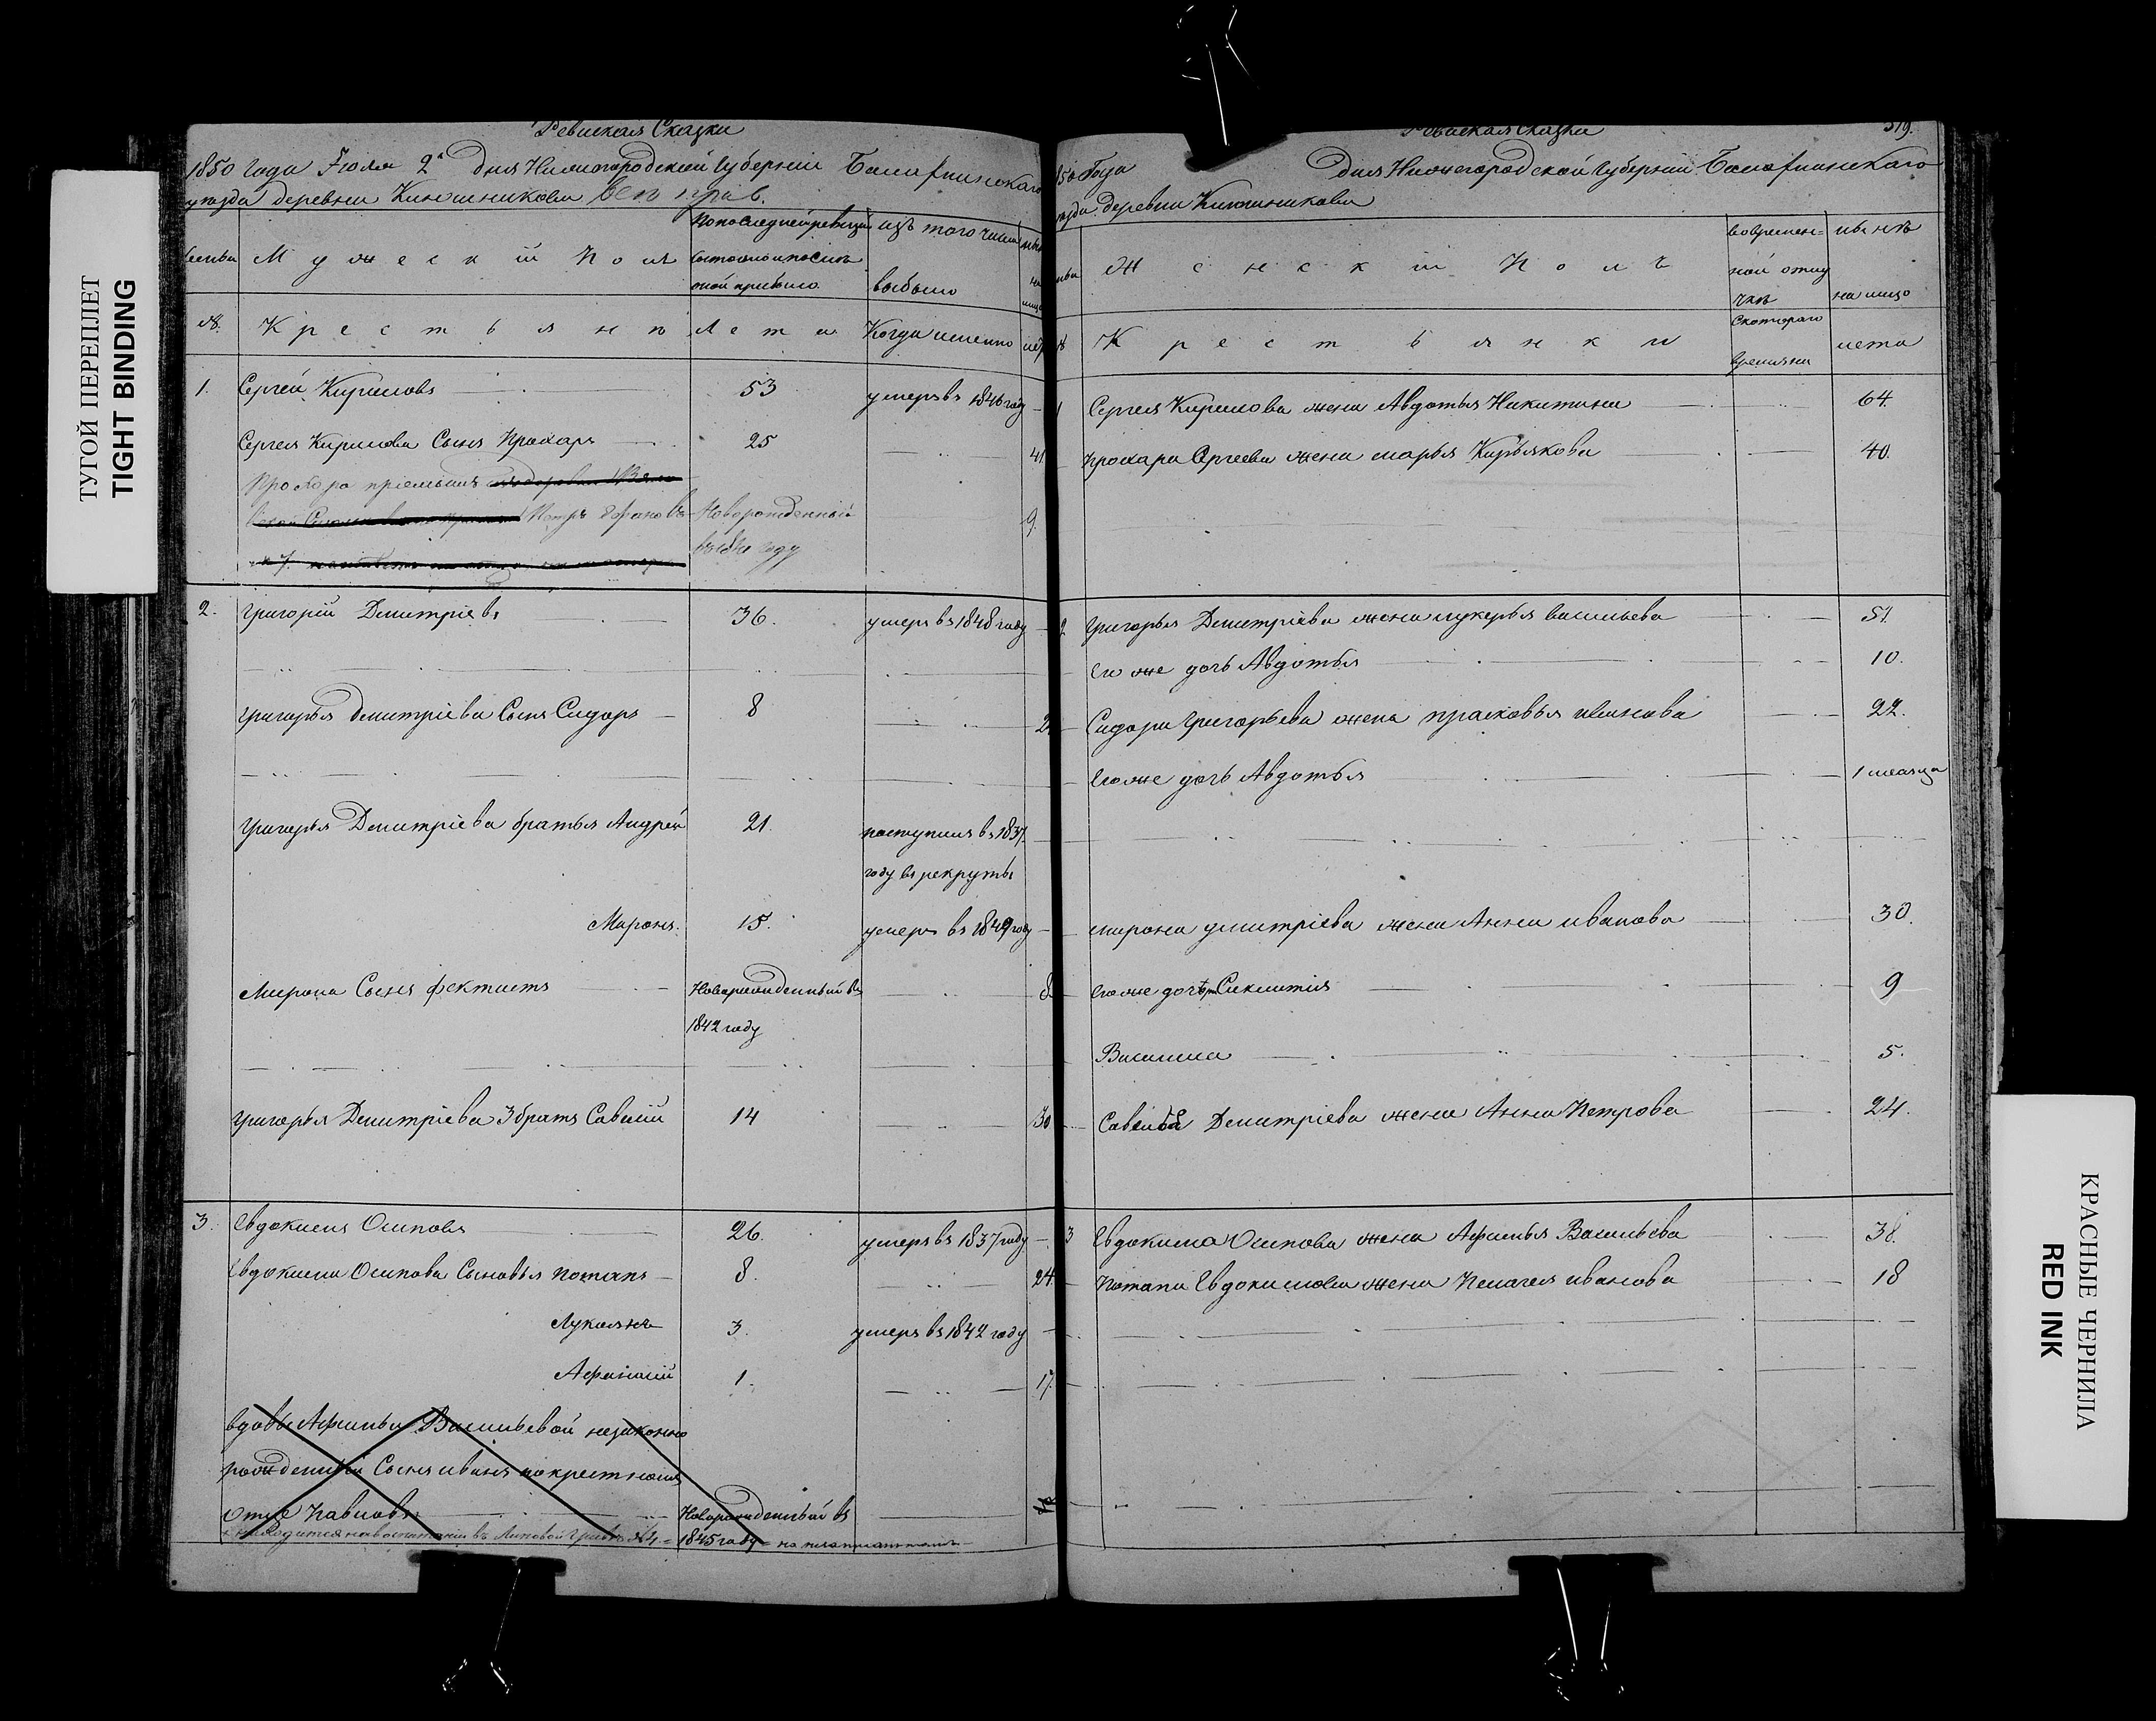 ТУГОЙ ПЕРЕПЛЕТ
TIGHT BINDING
Ревиская Сказка
1850 года Июля 2 дня Нижегородской Губернии Балахнинскаго
уезда деревни Кино​шникова
Мужеский Полъ
По последней ревизіи состояло и после оной прибыло
изъ того числа выбыло
№
Крестьяне
Лета
Когда именно
1. Сергей Кириловъ 53 умеръ въ 1846 году
Сергея Кирилова Сынъ Прохаръ 25 41
Прохора приемышъ
Петръ
Новорожденный 9
году
2. Григорій Дмитріевъ 36. умеръ въ 1848 году
Григорья Дмитріева Сынъ Сидоръ 8
Григорья Дмитріева братья Андрей 21. поступилъ въ 1837
году въ рекруты
Миронъ. 15. умеръ въ 1849 году
Мирона Сынъ фектистъ Новорожденный въ
1842 году
Григорья Дмитріева 3 братъ Савелій 14 30
3. Евдокимъ Осиповъ 26. умеръ въ 1837 году
Евдокима Осипова Сыновья потапъ 8. 24
Лукоянъ 3. умеръ въ 1842 году
Афанасій 1. 17
вдовы Афимьи Васильевой незаконно
рожденный Сынъ иванъ по крестному
отце Павловъ Новорожденный въ
находится на воспитаніи въ 1845 году
Ревиская Сказка
519.
1850 Года дня Нижегородской Губерніи Балахнинскаго
уезда деревни Кино​шникова
Женскій Полъ
во времен-
ной отлу
чке
ныне
на лицо
№
Крестьянки
С котораго
времяни
лета
1 Сергея Кирилова жена Авдотья Никитина 64.
Прохара Сергеева жена марья Кирьякова 40.
2 Григорья Дмитріева жена лукерья васильева 51.
Его же дочь Авдотья 10.
Сидора Григорьева жена прасковья иванова 22.
Его же дочь Авдотья 1 месяца
мирона дмитріева жена Анна иванова 30.
Его же дочь 9
Василиса 5.
Савелья Дмитріева жена Анна Петрова 24.
3 Евдокима Осипова жена Афимья Васильева 38.
Потапа Евдокимова жена Пелагея иванова 18
КРАСНЫЕ ЧЕРНИЛА
RED INK